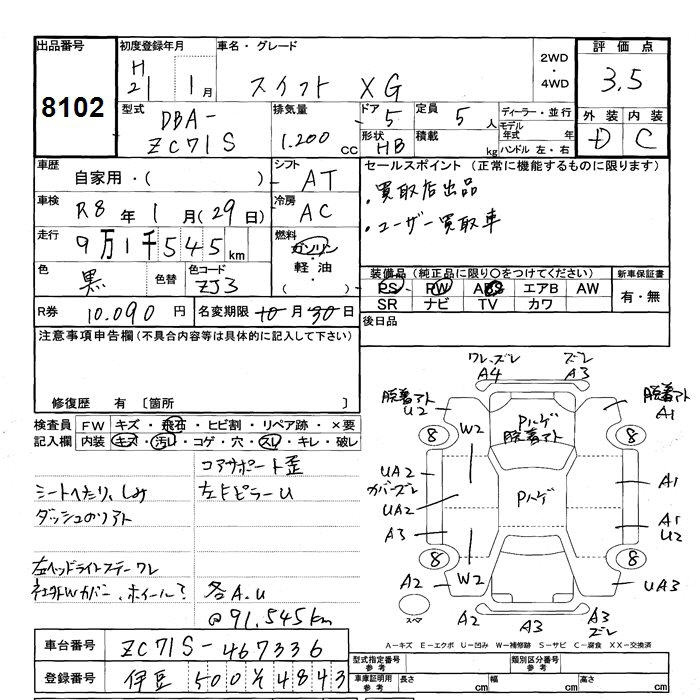 出品番号
8102
初度登録年月
H21 1月
車名・グレード
スイフト XG
2WD・4WD
評価点
3.5
外装 内装
D C
型式
DBA-
ZC71S
排気量
1.200 cc
ドア 5
形状 HB
定員 5 人
積載 kg
ディーラー・並行
モデル年式 年
ハンドル 左・右
車歴
自家用・( )
シフト
AT
車検
R8年1月(29日)
冷房
AC
走行
9万1千545km
燃料
ガソリン
軽油
( )
色
黒
色替
色コード
ZJ3
R券
10.090円
名変期限 10月30日
セールスポイント (正常に機能するものに限ります)
・買取店出品
・ユーザー買取車
装備品 (純正品に限り○をつけてください)
PS PW ABS エアB AW
SR ナビ TV カワ
新車保証書
有・無
後日品
注意事項申告欄(不具合内容等は具体的に記入して下さい)
修復歴 有 〔箇所 〕
検査員記入欄
FW キズ・飛石・ヒビ割・リペア跡・×要
内装 キズ・汚レ・コゲ・穴・スレ・キレ・破レ
コアサポート歪
シートへたり、しみ
左Fピラーu
ダッシュのリアト
左ヘッドライトステーワレ
社外Wカバー、ホイール?
各A.u
@91,545km
ワレ、ズレ
A4
ズレ
A3
脱着アト
U2
脱着アト
A1
Pハゲ
脱着アト
8
8
W2
UA2
カバーズレ
UA2
Pハゲ
A1
A3
A1
U2
8
8
A2
W2
UA3
スペア
A2
A3
A3
ズレ
A-キズ E-エクボ U-凹み W-補修跡 S-サビ C-腐食 XX-交換済
車台番号
ZC71S-467336
登録番号
伊豆 500 そ 4843
型式指定番号 参考
類別区分番号 参考
車庫証明用 参考
長さ cm
幅 cm
高さ cm